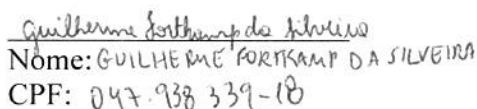 Guilherme Fortkamp da Silveira
Nome: GUILHERME FORTKAMP DA SILVEIRA
CPF: 047.938 339-18